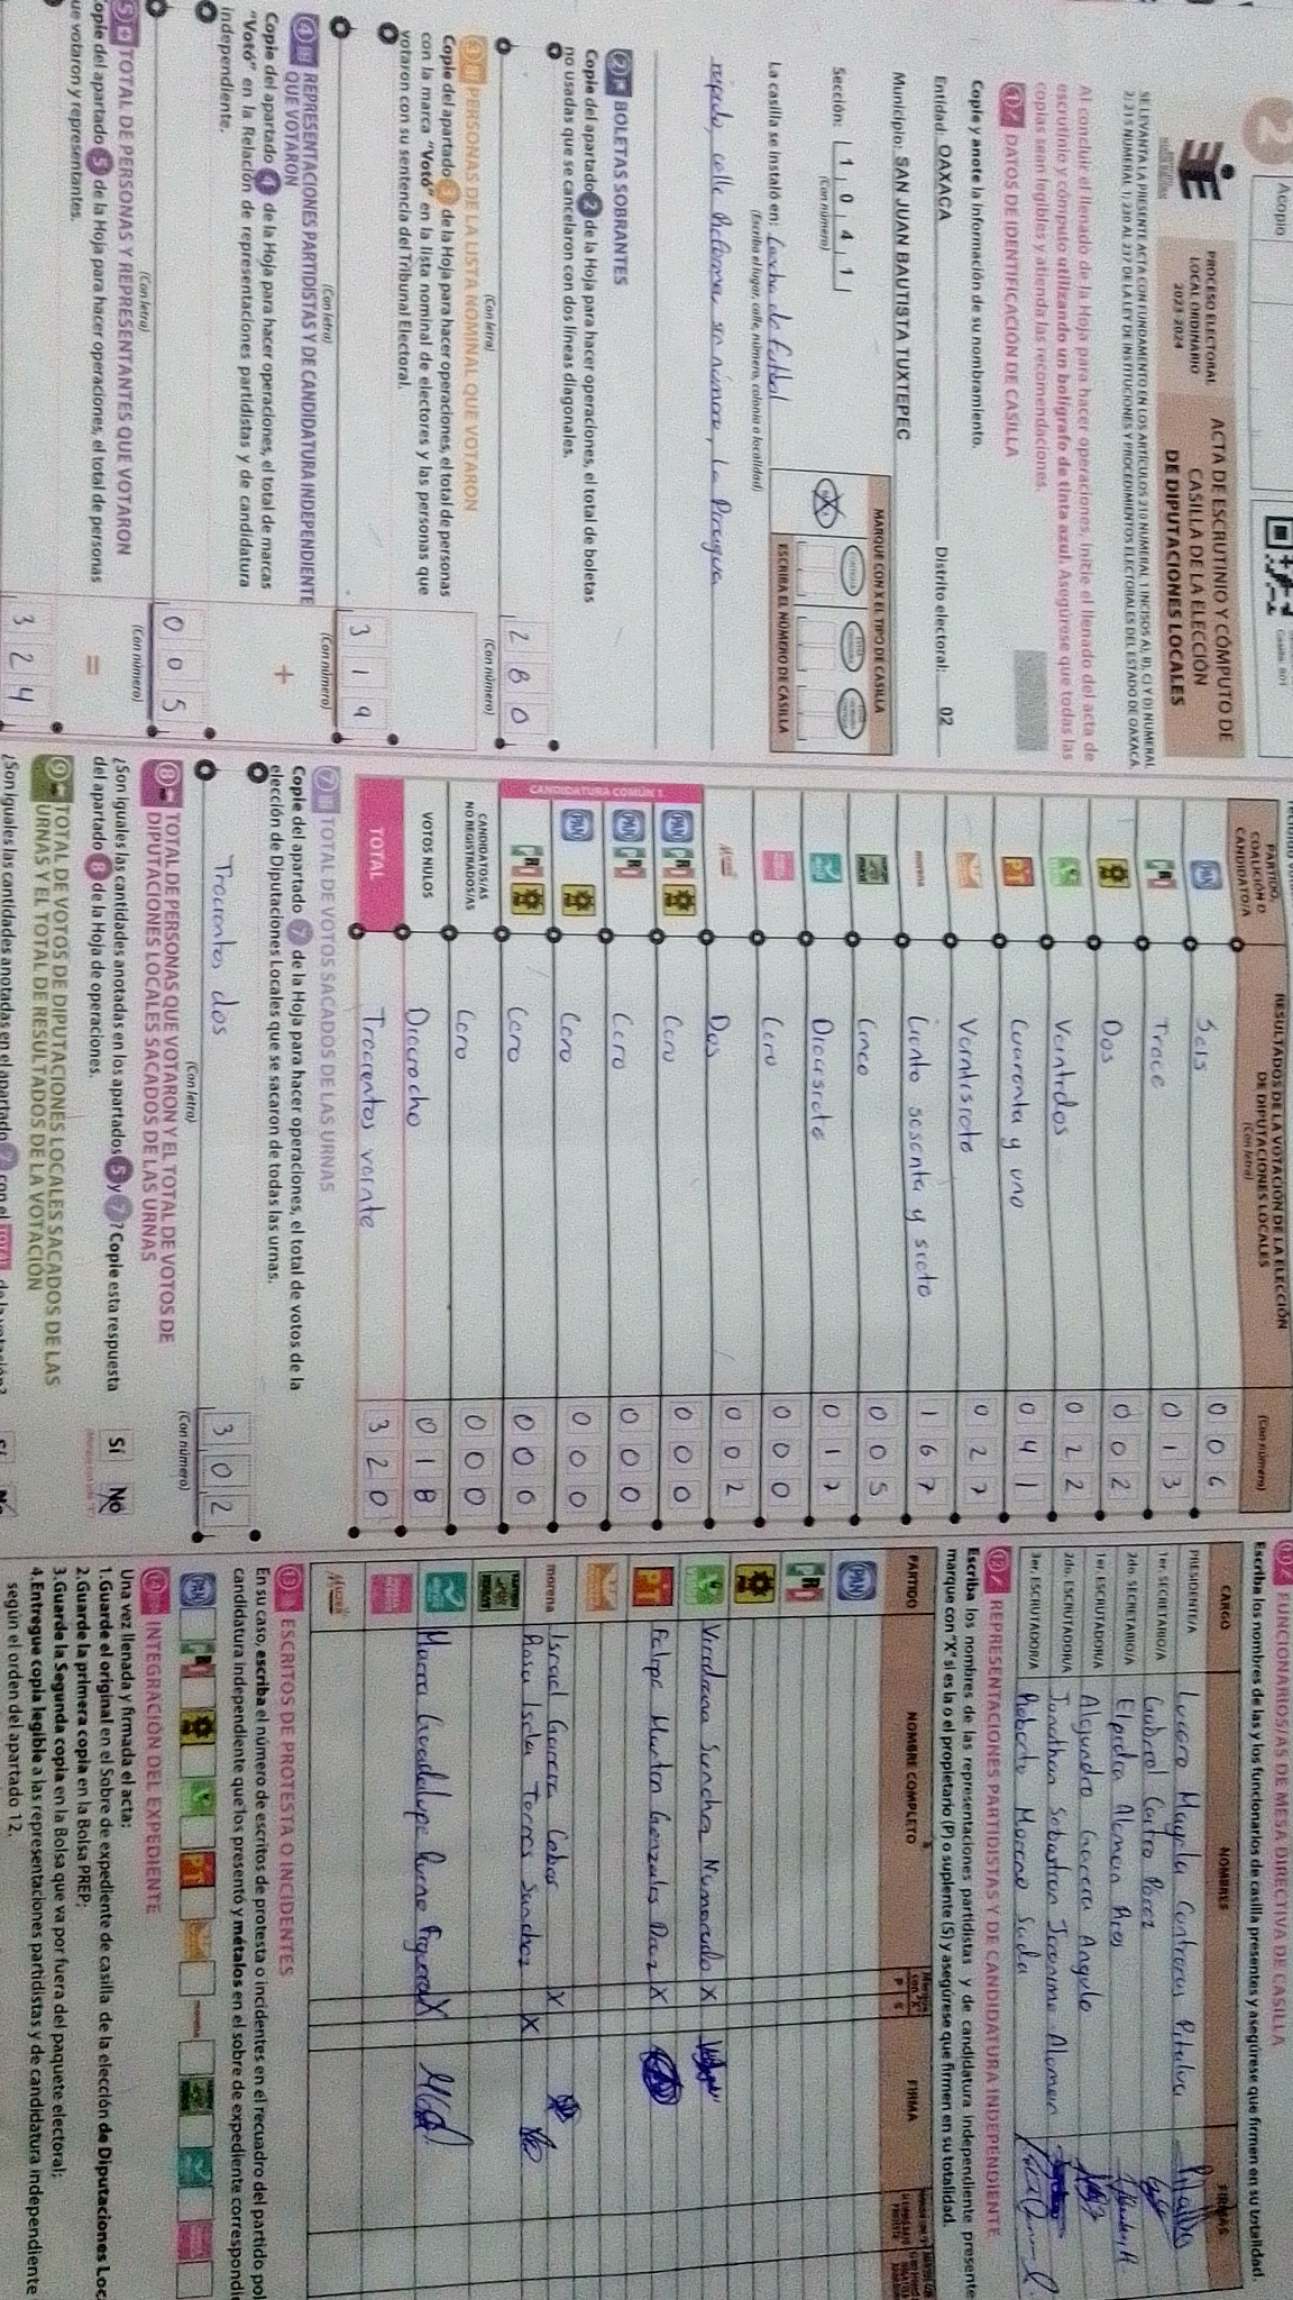 2
Acopio
PROCESO ELECTORAL
LOCAL ORDINARIO
2023-2024
ACTA DE ESCRUTINIO Y CÓMPUTO DE
CASILLA DE LA ELECCIÓN
DE DIPUTACIONES LOCALES
SE LEVANTA LA PRESENTE ACTA CON FUNDAMENTO EN LOS ARTÍCULOS 210 NUMERAL 1 INCISOS A), B), C) Y D) NUMERAL
2; 213 NUMERAL 1; 230 AL 237 DE LA LEY DE INSTITUCIONES Y PROCEDIMIENTOS ELECTORALES DEL ESTADO DE OAXACA.
Al concluir el llenado de la Hoja para hacer operaciones, inicie el llenado del acta de
escrutinio y cómputo utilizando un bolígrafo de tinta azul. Asegúrese que todas las
copias sean legibles y atienda las recomendaciones.
1 DATOS DE IDENTIFICACIÓN DE CASILLA
Copie y anote la información de su nombramiento.
Entidad: OAXACA Distrito electoral: 02
Municipio: SAN JUAN BAUTISTA TUXTEPEC
Sección: 1 0 4 1
(Con número)
MARQUE CON X EL TIPO DE CASILLA
ESCRIBA EL NÚMERO DE CASILLA
La casilla se instaló en: Cancha de futbol
(Escriba el lugar, calle, número, colonia o localidad)
calle Reforma, sin número, La Piragua
2 BOLETAS SOBRANTES
Copie del apartado 2 de la Hoja para hacer operaciones, el total de boletas
no usadas que se cancelaron con dos líneas diagonales.
2 8 0
(Con letra) (Con número)
3 PERSONAS DE LA LISTA NOMINAL QUE VOTARON
Copie del apartado 3 de la Hoja para hacer operaciones, el total de personas
con la marca "Votó" en la lista nominal de electores y las personas que
votaron con su sentencia del Tribunal Electoral.
3 1 9
(Con letra) (Con número)
4 REPRESENTACIONES PARTIDISTAS Y DE CANDIDATURA INDEPENDIENTE
QUE VOTARON
Copie del apartado 4 de la Hoja para hacer operaciones, el total de marcas
"Votó" en la Relación de representaciones partidistas y de candidatura
independiente.
+
0 0 5
(Con letra) (Con número)
5 TOTAL DE PERSONAS Y REPRESENTANTES QUE VOTARON
Copie del apartado 5 de la Hoja para hacer operaciones, el total de personas
que votaron y representantes.
=
3 2 4
PARTIDO,
COALICIÓN O
CANDIDATO/A
RESULTADOS DE LA VOTACIÓN DE LA ELECCIÓN
DE DIPUTACIONES LOCALES
(Con letra)
(Con número)
PAN Seis 0 0 6
PRI Trece 0 1 3
PRD Dos 0 0 2
Veintidos 0 2 2
PT Cuarenta y uno 0 4 1
Veintisiete 0 2 7
morena Ciento sesenta y siete 1 6 7
Cinco 0 0 5
Diecisiete 0 1 7
Cero 0 0 0
Mujer Dos 0 0 2
CANDIDATURA COMÚN 1
PAN PRI PRD Cero 0 0 0
PAN PRI Cero 0 0 0
PAN PRD Cero 0 0 0
PRI PRD Cero 0 0 0
CANDIDATOS/AS
NO REGISTRADOS/AS Cero 0 0 0
VOTOS NULOS Dieciocho 0 1 8
TOTAL Trecientos veinte 3 2 0
7 TOTAL DE VOTOS SACADOS DE LAS URNAS
Copie del apartado 7 de la Hoja para hacer operaciones, el total de votos de la
elección de Diputaciones Locales que se sacaron de todas las urnas.
Trecientos dos 3 0 2
(Con letra) (Con número)
8 TOTAL DE PERSONAS QUE VOTARON Y EL TOTAL DE VOTOS DE
DIPUTACIONES LOCALES SACADOS DE LAS URNAS
¿Son iguales las cantidades anotadas en los apartados 5 y 7? Copie esta respuesta
del apartado 8 de la Hoja de operaciones.
SÍ NO
9 TOTAL DE VOTOS DE DIPUTACIONES LOCALES SACADOS DE LAS
URNAS Y EL TOTAL DE RESULTADOS DE LA VOTACIÓN
¿Son iguales las cantidades anotadas en el apartado 7 con el TOTAL de la votación?
11 FUNCIONARIOS/AS DE MESA DIRECTIVA DE CASILLA
Escriba los nombres de las y los funcionarios de casilla presentes y asegúrese que firmen en su totalidad.
CARGO NOMBRES FIRMAS
PRESIDENTE/A Lucero Mayela Contreras Pitalua
1er. SECRETARIO/A Gabriel Castro Perez
2do. SECRETARIO/A Elpidia Aleman Rios
1er. ESCRUTADOR/A Alejandro Garcia Angulo
2do. ESCRUTADOR/A Jonathan Sebastian Jeronimo Aleman
3er. ESCRUTADOR/A Roberto Moreno Suda
12 REPRESENTACIONES PARTIDISTAS Y DE CANDIDATURA INDEPENDIENTE
Escriba los nombres de las representaciones partidistas y de candidatura independiente presente
marque con "X" si es la o el propietario (P) o suplente (S) y asegúrese que firmen en su totalidad.
PARTIDO NOMBRE COMPLETO P S FIRMA
PAN
PRI
PRD
Viridiana Sanchez X
PT Felipe Martin Gonzalez Diaz X
morena Israel Garcia Cobos X
Rosa Isela Torres Sanchez X
Maria Guadalupe Figueroa X
Mujer
13 ESCRITOS DE PROTESTA O INCIDENTES
En su caso, escriba el número de escritos de protesta o incidentes en el recuadro del partido pol
candidatura independiente que los presentó y métalos en el sobre de expediente correspondi
PAN PRI PRD PT morena
14 INTEGRACIÓN DEL EXPEDIENTE
Una vez llenada y firmada el acta:
1. Guarde el original en el Sobre de expediente de casilla de la elección de Diputaciones Loc
2. Guarde la primera copia en la Bolsa PREP;
3. Guarde la Segunda copia en la Bolsa que va por fuera del paquete electoral;
4. Entregue copia legible a las representaciones partidistas y de candidatura independiente
según el orden del apartado 12.